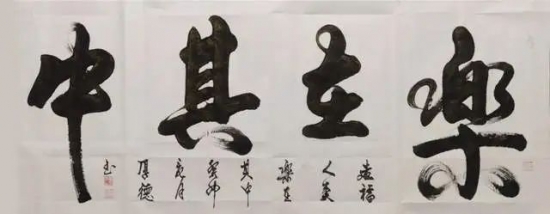 樂在其中
造福
人类
樂在
其中
癸卯
元月
厚德
书